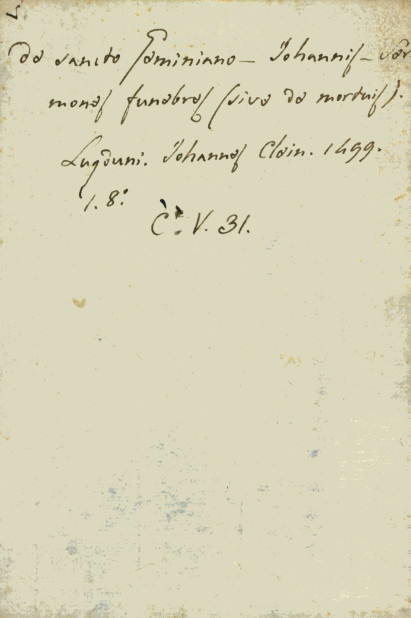 de sancto Geminiano - Johannis - ser
mones funebres (sive de mortuis).
Lugduni. Johannes Clein. 1499.
1. 8:
C: V. 31.